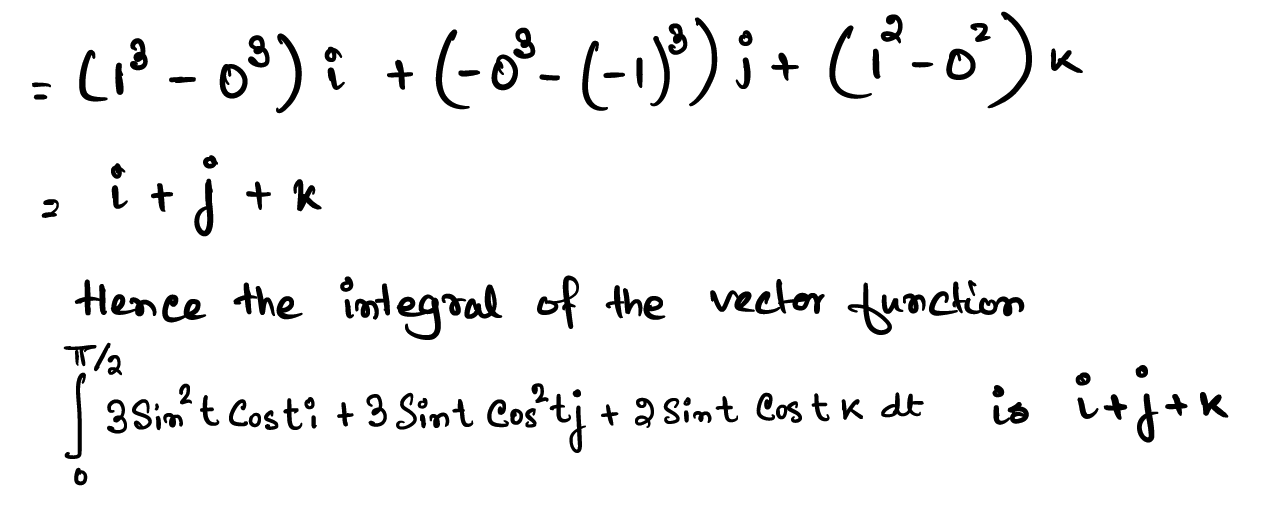 = (1³ - 0³) i + (-0³ - (-1)³) j + (1² - 0²) k
= i + j + k
Hence the integral of the vector function
∫₀^(π/2) 3 Sin² t Cos t i + 3 Sin t Cos² t j + 2 Sin t Cos t k dt is i + j + k